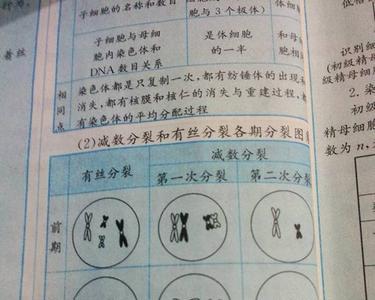 子细胞的名称和数目
胞与3个极体)
子细胞与母细
胞内染色体和
DNA数目关系
是体细胞
的一半
和母
胞相
相同点
染色体都是只复制一次,都有纺锤体的出现
消失,都有核膜和核仁的消失与重建过程,
有染色体的平均分配过程
(2)减数分裂和有丝分裂各期分裂图
有丝分裂
减数分裂
第一次分裂
第二次分裂
前期
着丝
识别细
(初级精
级精母细胞
2.染
初级
精母细胞
数为n,